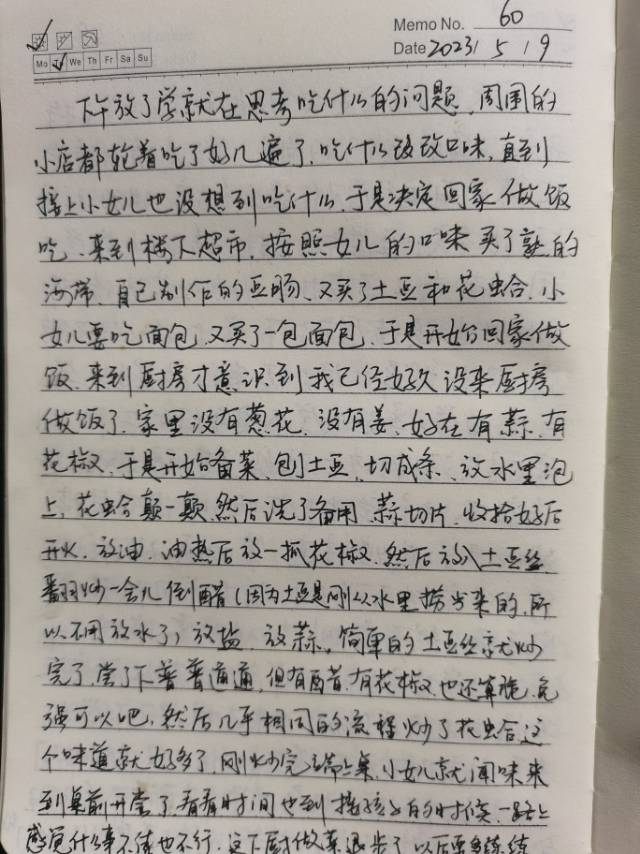 Memo No. 60
Mo Tu We Th Fr Sa Su
Date 2023 / 5 / 9
下午放了学就在思考吃什么的问题,周围的
小店都轮着吃了好几遍了,吃什么该改口味,直到
接上小女儿也没想到吃什么,于是决定回家做饭
吃、来到楼下超市,按照女儿的口味买了熟的
海带、自己制作的豆肠、又买了土豆和花蛤,小
女儿要吃面包,又买了一包面包,于是开始回家做
饭,来到厨房才意识到我已经好久没来厨房
做饭了,家里没有葱花,没有姜、好在有蒜,有
花椒、于是开始备菜、刨土豆、切成条、放水里泡
上,花蛤颠一颠,然后洗了备用,蒜切片,收拾好后
开火,放油,油热后放一抓花椒、然后放入土豆丝,
翻炒一会儿倒醋(因为土豆是刚从水里捞出来的,所
以不用放水了)放盐,放蒜,简单的土豆丝就炒
完了,尝了下普普通通,但有醋,有花椒,也还算脆,免
强可以吧,然后几乎相同的流程炒了花蛤,这
个味道就好多了,刚炒完端上桌,小女儿就闻味来
到桌前开尝了,看看时间也到接孩子的时候,一路上
感觉什么事不练也不行,这下厨做菜退步了,以后要多练练